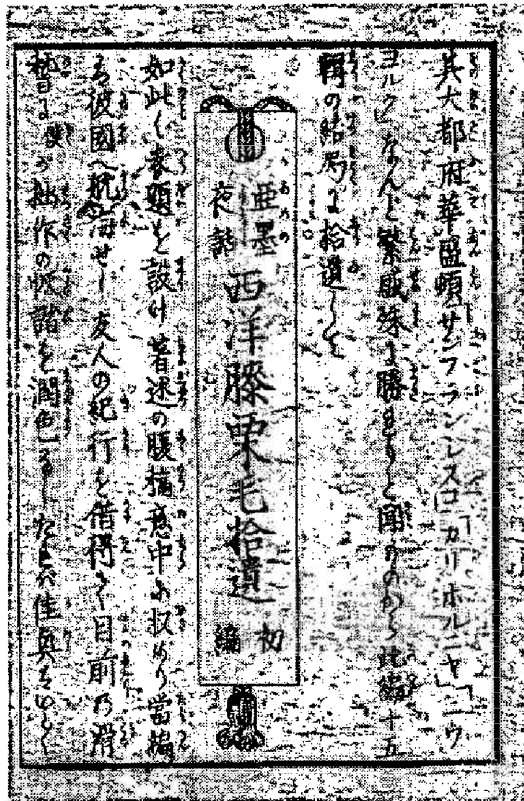 其大都府華盛頓「サンフランシスコ」「カリホルニヤ」「ニウ
ヨルク」なんど繁盛殊に勝れりと聞ものから此編十五
輯の結局に拾遺して
亜墨
夜話
西洋膝栗毛拾遺
初編
如此く表題を設け著述の腹稿意中に収めり当編
彼國へ航海せし友人の紀行を借得て目前の滑
僕が拙作の戯語を潤色